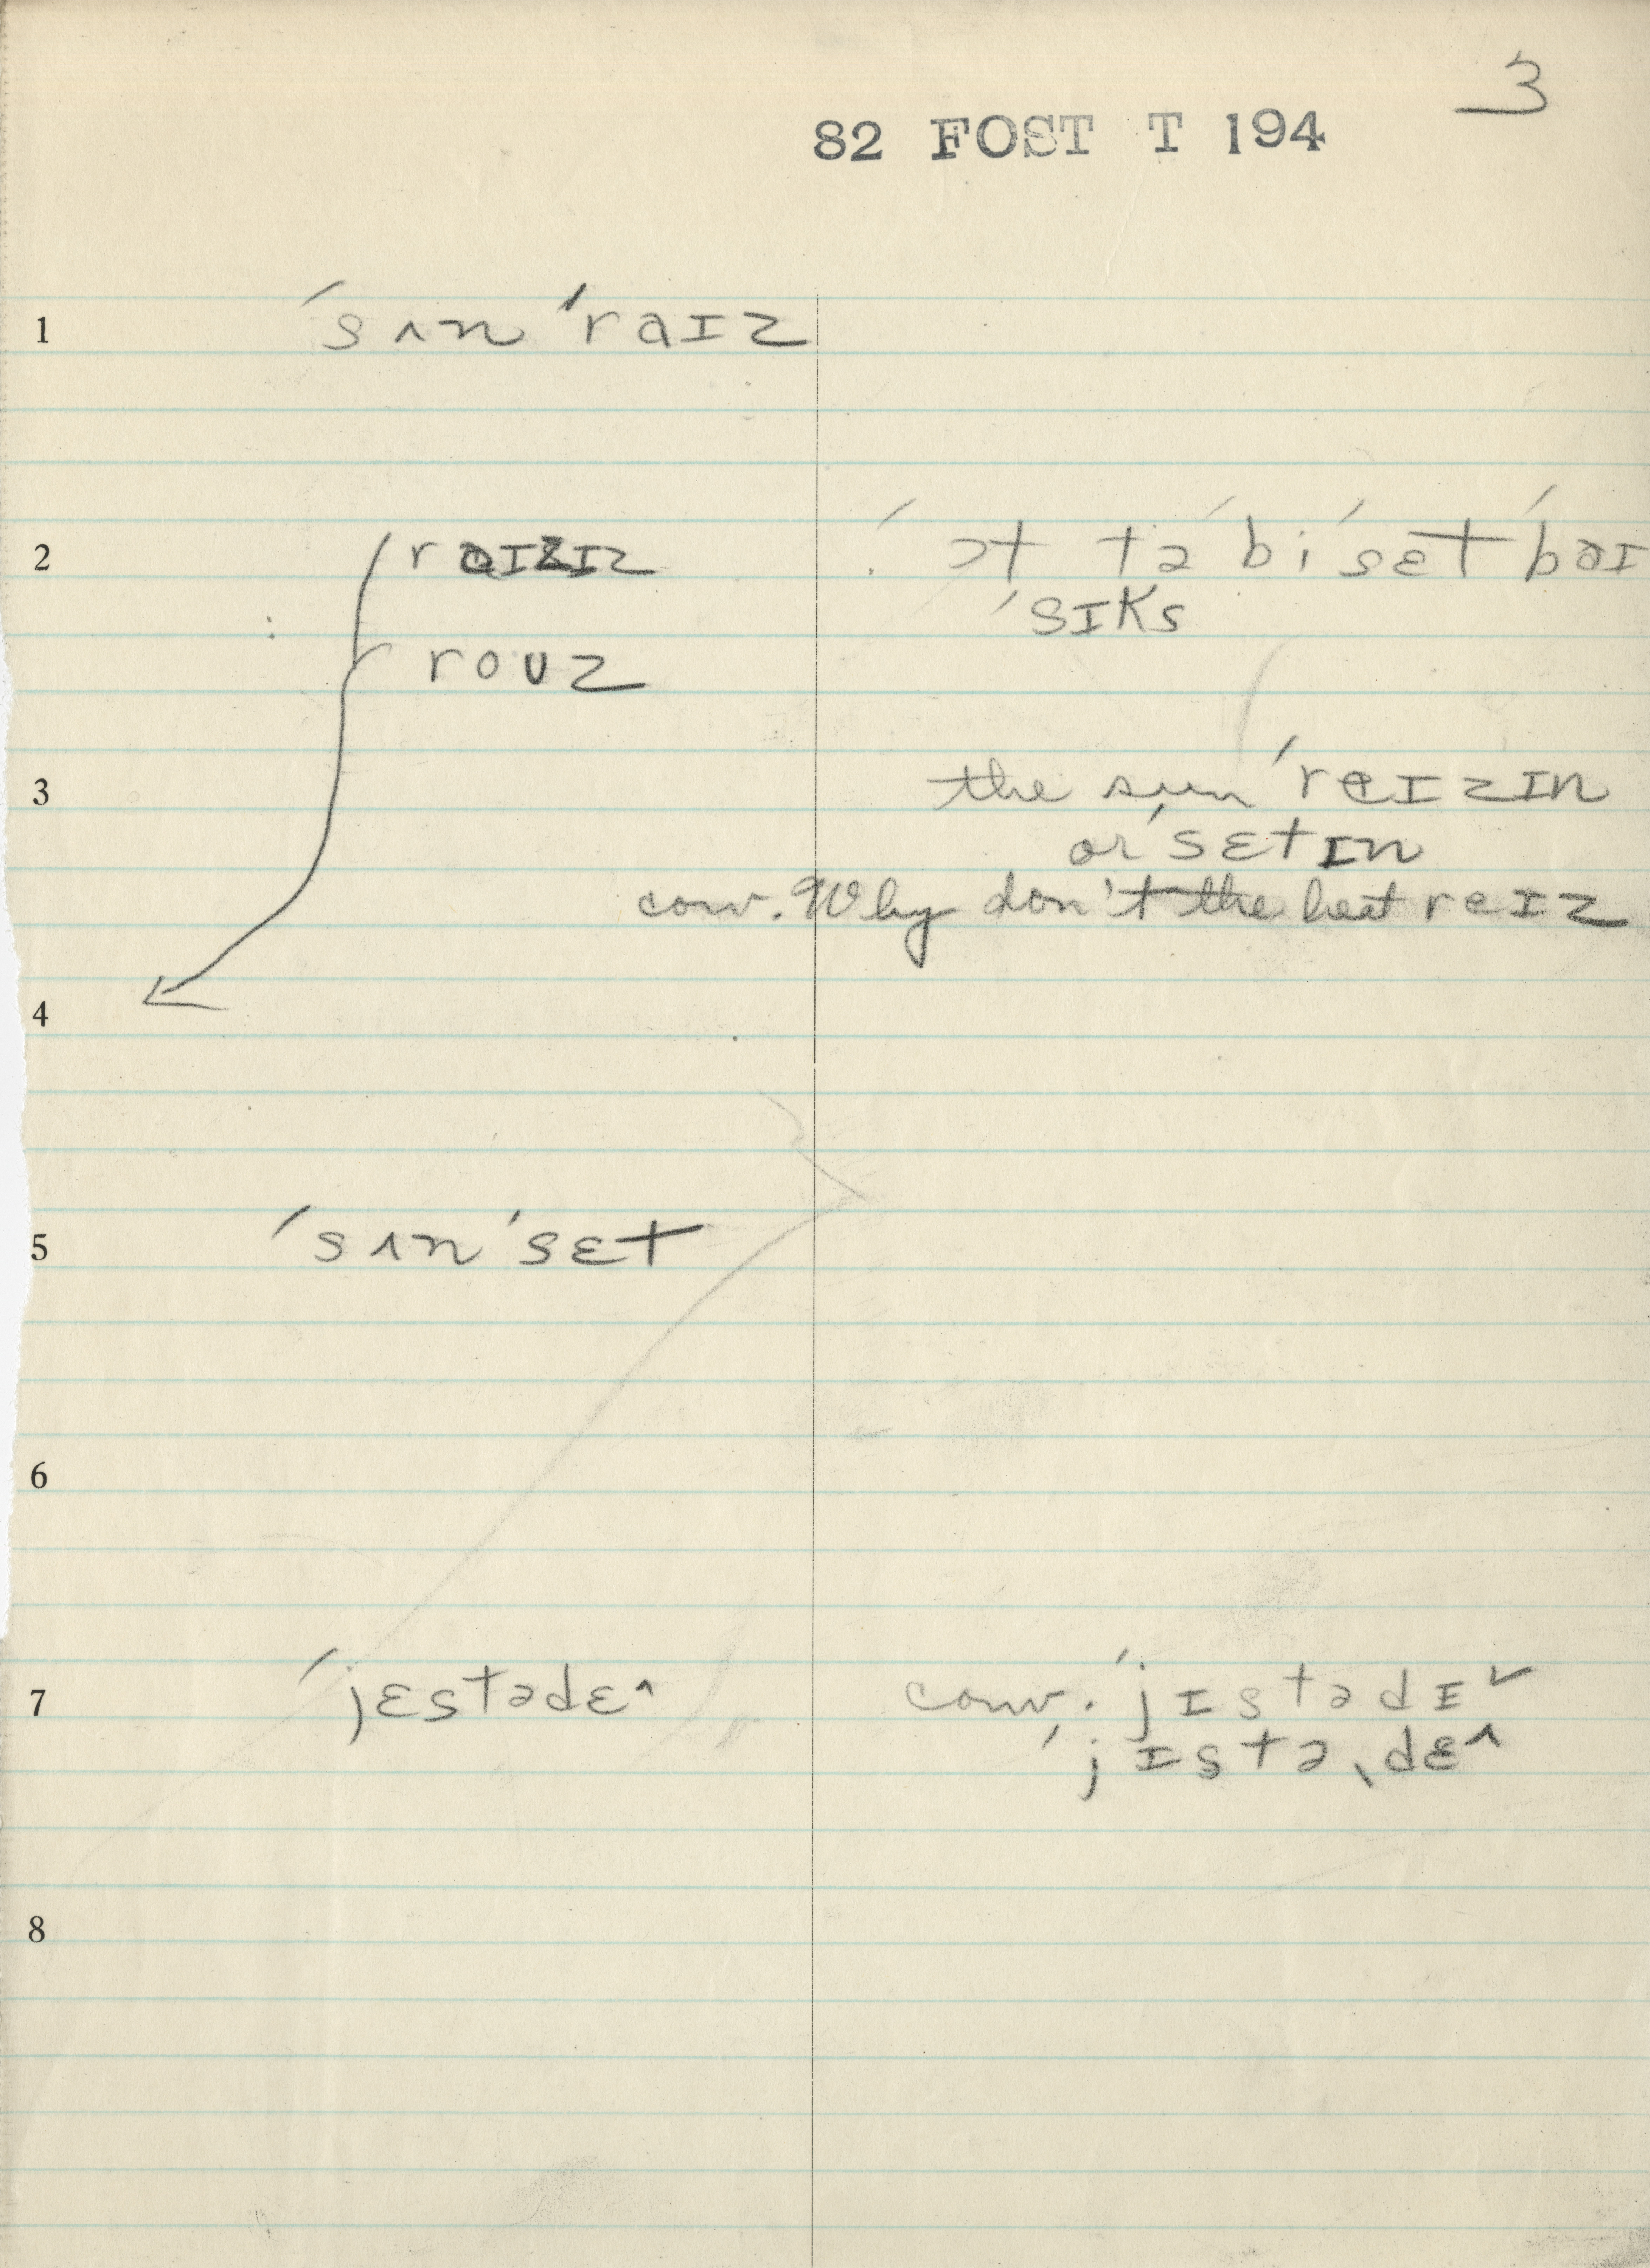 3
82 FOST T 194
1 ˈsʌnˈraɪz
2 raɪzɪz
ˈɔt təˈbiˈsɛtˈbaɪ
ˈsɪks
rouz
3 the sun ˈrɐɪzɪn
or ˈsɛtɪn
conv. Why don't the heat rɐɪz
4
5 ˈsʌnˈsɛt
6
7 ˈjɛstədɛ^
conv. ˈjɪstədɪˇ
ˈjɪstəˌdɛ^
8